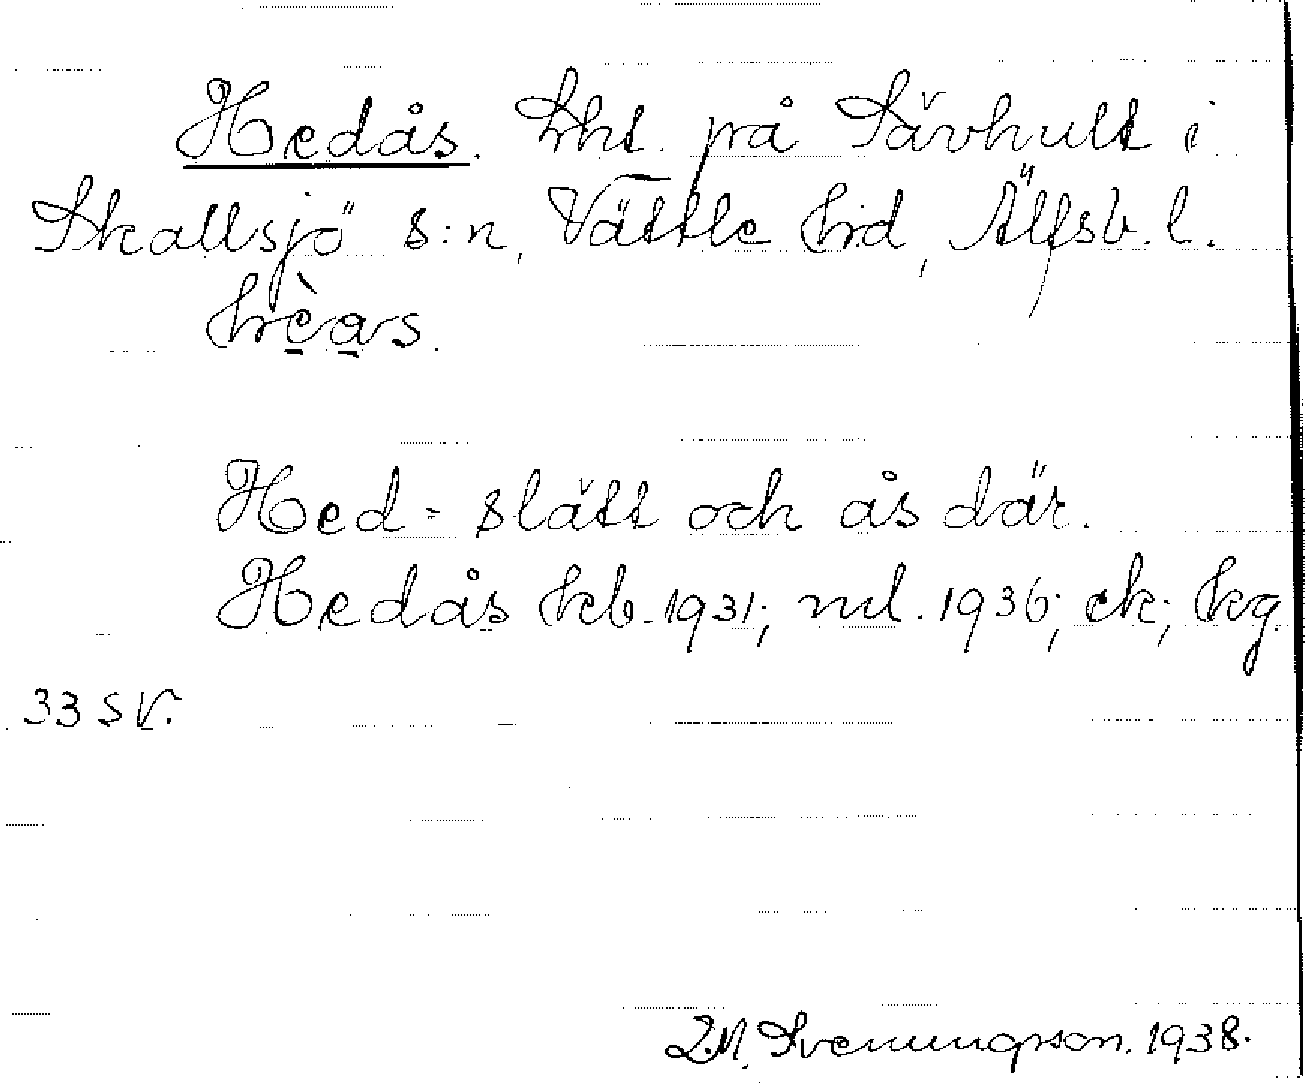 Hedås. Lht. på Sävhult i
Skallsjö s:n, Vättle hrd, Älfsb. l.
hèas.
Hed-slätt och ås där.
Hedås hkb. 1931; ml. 1936; ek; hkg.
33 SV.
Svenungsson. 1938.